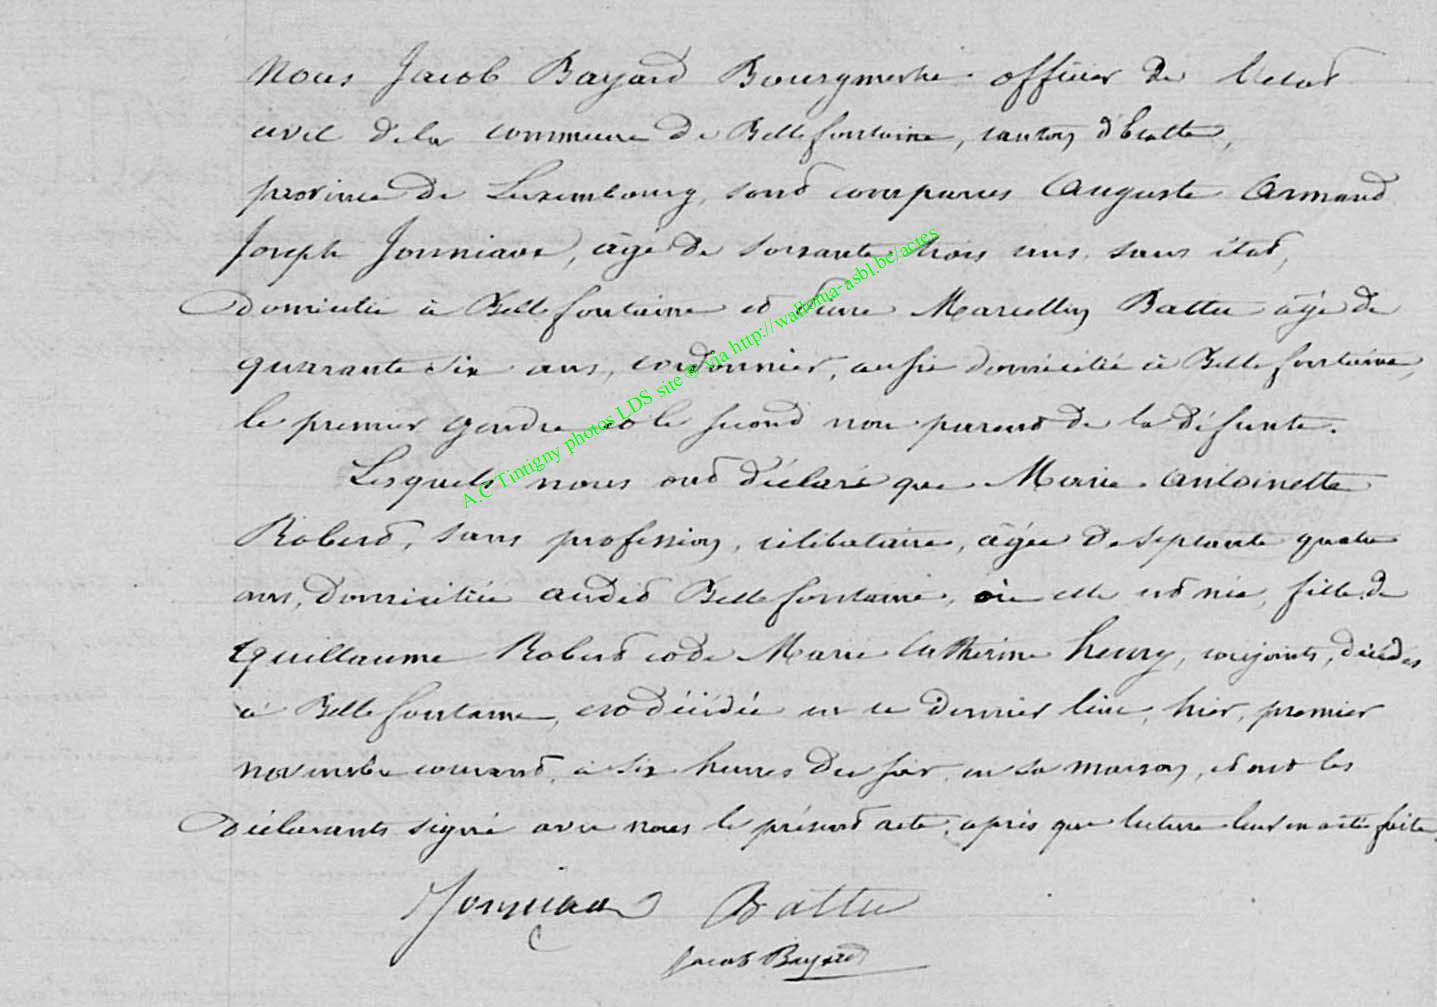 Nous Jacob Bayard Bourgmestre officier de l'état
civil de la commune de Bellefontaine, canton d'Etalle,
province de Luxembourg, sont comparus Auguste Armand
Joseph Jonniaux, âgé de soixante trois ans, sans état,
domicilié à Bellefontaine et Marcellin Battu âgé de
quarante six ans, cordonnier, aussi domicilié à Bellefontaine,
le premier gendre et le second non parent de la défunte.
Lesquels nous ont déclaré que Marie Antoinette
Robert, sans profession, célibataire, âgée de septante quatre
ans, domiciliée audit Bellefontaine, où elle est née, fille de
Guillaume Robert et de Marie Catherine henry, conjoints, décédés
à Bellefontaine, est décédée en ce dernier lieu, hier, premier
novembre courant, à six heures du soir, en sa maison, et ont les
déclarants signé avec nous le présent acte, après que lecture leur en a été faite.
Jonniaux Battu
Jacob Bayard
A.C Tintigny photos LDS site © via http://wallonia-asbl.be/actes